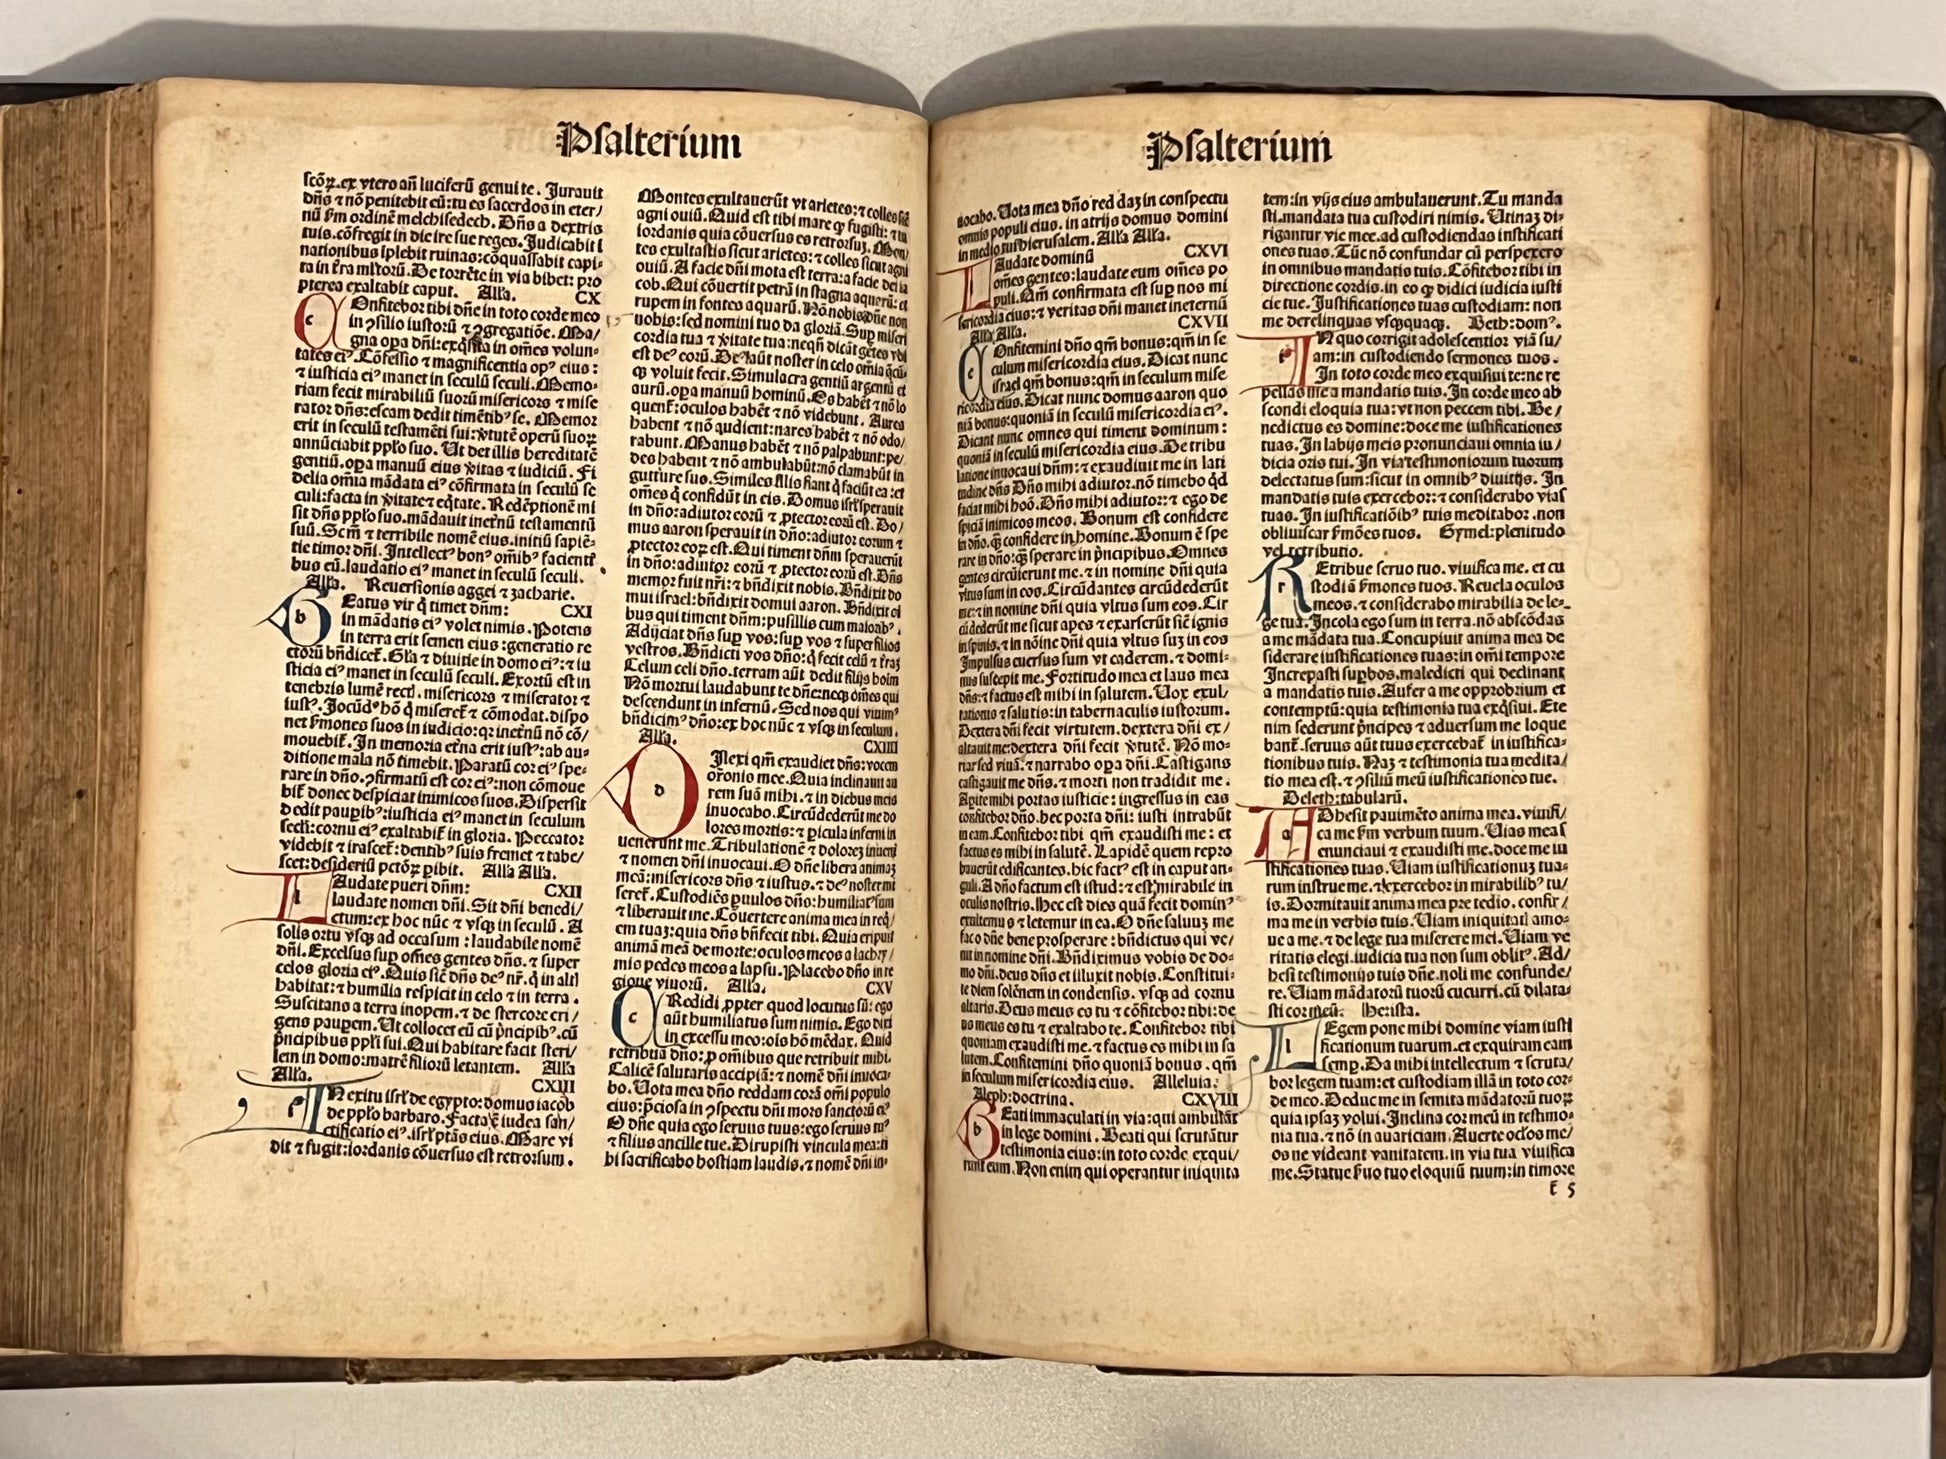 Psalterium
scōꝝ.ex vtero añ luciferū genui te. Jurauit
dñs ⁊ nō penitebit eū:tu es sacerdos in eter/
nū ẜm ordinē melchisedech. Dñs a dextris
tuis.cōfregit in die ire sue reges. Judicabit ī
nationibus īplebit ruinas:cōquassabit capi-
ta in t̄ra mltoꝝ. De torrēte in via bibet: pro
pterea exaltabit caput. Alla. CX
COnfitebor tibi dñe in toto corde meo
in ꝯsilio iustorū ⁊ ꝯgregatiōe. Ma/
gna opa dñi:exqsita in omēs volun-
tates eiꝰ. Cōfessio ⁊ magnificentia opꝰ eius:
⁊ iusticia eiꝰ manet in seculū seculi. Memo-
riam fecit mirabiliū suorū misericors ⁊ mise
rator dñs:escam dedit timētibꝰ se. Memor
erit in seculū testamēti sui:v̄tutē operū suoꝝ
annūciabit pplo suo. Ut det illis hereditatē
gentiū.opa manuū eius v̄itas ⁊ iudiciū. Fi
delia omīa mādata eiꝰ cōfirmata in seculū se
culi:facta in v̄itate ⁊ eqtate. Redēptionē mi
sit dñs pplo suo.mādauit inet̄nū testamentū
suū. Scm̄ ⁊ terribile nomē eius.initiū sapiē-
tie timor dñi. Intellectꝰ bonꝰ omībꝰ facientī
bus eū.laudatio eiꝰ manet in seculū seculi.
Alla. Reuersionis aggei ⁊ zacharie.
BEatus vir q̇ timet dñm: CXI
in mādatis eiꝰ volet nimis. Potens
in terra erit semen eius:generatio re
ctorū bñdicet̄. Gl̄a ⁊ diuitie in domo eiꝰ:⁊ iu
sticia eiꝰ manet in seculū seculi. Exortū est in
tenebris lumē rectī.misericors ⁊ miserator ⁊
iustꝰ. Jocūdꝰ hō q̇ miseret̄ ⁊ cōmodat.dispo
net ẜmones suos in iudicio:qꝛ inet̄nū nō cō/
mouebit̄. In memoria et̄na erit iustꝰ:ab au-
ditione mala nō timebit. Paratū cor eiꝰ spe-
rare in dño.ꝯfirmatū est cor eiꝰ:non cōmoue
bit̄ donec despiciat inimicos suos. Dispersit
dedit paupibꝰ:iusticia eiꝰ manet in seculum
seclī:cornu eiꝰ exaltabit̄ in gloria. Peccator
videbit ⁊ irascet̄:dentibꝰ suis fremet ⁊ tabe/
scet:desideriū pctōꝝ pibit. Alla Alla.
LAudate pueri dñm: CXII
laudate nomen dñi. Sit dñi benedi/
ctum:ex hoc nūc ⁊ vsqꝫ in seculū. A
solis ortu vsqꝫ ad occasum:laudabile nomē
dñi. Excelsus sup omēs gentes dñs.⁊ super
celos gloria eiꝰ. Quis sic̄ dñs deꝰ nr̄.q̇ in altī
habitat:⁊ humilia respicit in celo ⁊ in terra.
Suscitans a terra inopem.⁊ de stercore eri/
gens paupem. Ut collocet eū cū p̄ncipibꝰ.cū
p̄ncipibus ppli sui. Qui habitare facit steri/
lem in domo:matrē filiorū letantem. Alla
Alla. CXIII
IN exitu isrl̄ de egypto:domus iacob
de pplo barbaro. Facta ē iudea san/
ctificatio eiꝰ.isrl̄ ptās eius. Mare vi
dit ⁊ fugit:iordanis cōuersus est retrorsum.
Montes exultauerūt vt arietes:⁊ colles sic̄
agni ouiū. Quid est tibi mare qꝙ fugisti:⁊ tu
iordanis quia cōuersus es retrorsuꝫ. Mon/
tes exultastis sicut arietes:⁊ colles sicut agni
ouiū. A facie dñi mota est terra:a facie dei ia
cob. Qui cōuertit petrā in stagna aquarū:et
rupem in fontes aquarū. Nō nobis dñe non
nobis:sed nomini tuo da gloriā. Sup miseri
cordia tua ⁊ v̄itate tua:neqñ dicāt gētes vbi
est deꝰ eorū. Deꝰ aūt noster in celo omīa q̄cū-
qꝫ voluit fecit. Simulacra gentiū argentū et
aurū.opa manuū hominū. Os habēt ⁊ nō lo
quent̄:oculos habēt ⁊ nō videbunt. Aures
habent ⁊ nō audient:nares habēt ⁊ nō odo/
rabunt. Manus habēt ⁊ nō palpabunt:pe/
des habent ⁊ nō ambulabūt:nō clamabūt in
gutture suo. Similes illis fiant q̇ faciūt ea:et
omēs q̇ confidūt in eis. Domus isrl̄ sperauit
in dño:adiutor eorū ⁊ ꝓtector eorū est. Do/
mus aaron sperauit in dño:adiutor eorum ⁊
ꝓtector eoꝝ est. Qui timent dñm sperauerūt
in dño:adiutor eorū ⁊ ꝓtector eorū est. Dñs
memor fuit nr̄i:⁊ bñdixit nobis. Bñdixit do
mui israel:bñdixit domui aaron. Bñdixit oī
bus qui timent dñm:pusillis cum maioribꝰ.
Adijciat dñs sup vos:sup vos ⁊ super filios
vestros. Bñdicti vos dño:q̇ fecit celū ⁊ t̄raꝫ
Celum celi dño.terram aūt dedit filijs hoīm
Nō mortui laudabunt te dñe:neqꝫ oēs qui
descendunt in infernū. Sed nos qui viuimꝰ
bñdicimꝰ dño:ex hoc nūc ⁊ vsqꝫ in seculum.
Alla. CXIIII
DIlexi qm̄ exaudiet dñs:vocem
orōnis mee. Quia inclinauit au
rem suā mihi.⁊ in diebus meis
inuocabo. Circūdederūt me do
lores mortis:⁊ picula inferni in
uenerunt me. Tribulationē ⁊ dolorez inueni
⁊ nomen dñi inuocaui. O dñe libera animaꝫ
meā:misericors dñs ⁊ iustus.⁊ deꝰ noster mi
seret̄. Custodiēs puulos dñs:humiliatꝰ sum
⁊ liberauit me. Cōuertere anima mea in reqͥ/
em tuaꝫ:quia dñs bñfecit tibi. Quia eripuit
animā meā de morte:oculos meos a lachry/
mis pedes meos a lapsu. Placebo dño in re
gione viuorū. Alla. CXV
CRedidi ꝓpter quod locutus sū:ego
aūt humiliatus sum nimis. Ego dixi
in excessu meo:oīs hō mēdax. Quid
retribuā dño:ꝓ omībus que retribuit mihi.
Calicē salutaris accipiā:⁊ nomē dñi inuoca-
bo. Uota mea dño reddam corā omī populo
eius:p̄ciosa in ꝯspectu dñi mors sanctorū eiꝰ
O dñe quia ego seruus tuus:ego seruus tuꝰ
⁊ filius ancille tue. Dirupisti vincula mea:ti
bi sacrificabo hostiam laudis.⁊ nomē dñi in-
Psalterium
uocabo. Uota mea dño reddaꝫ in conspectu
omnis populi eius.in atrijs domus domini
in medio tui hierusalem. Alla Alla.
LAudate dominū CXVI
omēs gentes:laudate eum omēs po
puli. Qm̄ confirmata est sup nos mi
sericordia eius:⁊ veritas dñi manet inet̄nū
Alla Alla. CXVII
COnfitemini dño qm̄ bonus:qm̄ in se
culum misericordia eius. Dicat nunc
israel qm̄ bonus:qm̄ in seculum mise
ricordia eius. Dicat nunc domus aaron quo
niā bonus:quoniā in seculū misericordia eiꝰ.
Dicant nunc omnes qui timent dominum:
quoniā in seculū misericordia eius. De tribu
latione inuocaui dñm:⁊ exaudiuit me in lati
tudine dñs Dñs mihi adiutor.nō timebo qd
faciat mihi hoō. Dñs mihi adiutor:⁊ ego de
spiciā inimicos meos. Bonum est confidere
in dño.qꝫ confidere in homine. Bonum ē spe
rare in dño:qꝫ sperare in p̄ncipibus. Omnes
gentes circūierunt me.⁊ in nomine dñi quia
vltus sum in eos. Circūdantes circūdederūt
me:⁊ in nomine dñi quia vltus sum eos. Cir
cūdederūt me sicut apes ⁊ exarserūt sic̄ ignis
in spinis.⁊ in nōine dñi quia vltus suꝫ in eos
Impulsus euersus sum vt caderem.⁊ domi-
nus suscepit me. Fortitudo mea et laus mea
dñs:⁊ factus est mihi in salutem. Uox exul/
tationis ⁊ salutis:in tabernaculis iustorum.
Dextera dñi fecit virtutem.dextera dñi ex/
altauit me:dextera dñi fecit v̄tutē. Nō mo-
riar sed viuā.⁊ narrabo opa dñi. Castigans
castigauit me dñs.⁊ morti non tradidit me.
Apite mihi portas iusticie:ingressus in eas
confitebor dño.hec porta dñi:iusti intrabūt
in eam. Confitebor tibi qm̄ exaudisti me:et
factus es mihi in salutē. Lapidē quem repro
bauerūt edificantes.hic factꝰ est in caput an-
guli. A dño factum est istud:⁊ est mirabile in
oculis nostris. Hec est dies quā fecit dominꝰ
exultemus ⁊ letemur in ea. O dñe saluuꝫ me
fac o dñe bene prosperare:bñdictus qui ve/
nit in nomine dñi. Bñdiximus vobis de do-
mo dñi.deus dñs et illuxit nobis. Constitui-
te diem solēnem in condensis.vsqꝫ ad cornu
altaris. Deus meus es tu ⁊ cōfitebor tibi:de
us meus es tu ⁊ exaltabo te. Confitebor tibi
quoniam exaudisti me.⁊ factus es mihi in sa
lutem. Confitemini dño quoniā bonus.qm̄
in seculum misericordia eius. Alleluia.
Aleph:doctrina. CXVIII
BEati immaculati in via:qui ambulāt
in lege domini. Beati qui scrutātur
testimonia eius:in toto corde exqui/
runt eum. Non enim qui operantur iniquita
tem:in vijs eius ambulauerunt. Tu manda
sti.mandata tua custodiri nimis. Utinaꝫ di-
rigantur vie mee.ad custodiendas iustificati
ones tuas. Tūc nō confundar cū perspexero
in omnibus mandatis tuis. Cōfitebor tibi in
directione cordis.in eo qꝙ didici iudicia iusti
cie tue. Justificationes tuas custodiam:non
me derelinquas vsqꝫquaqꝫ. Beth:domꝰ.
IN quo corrigit adolescentior viā su/
am:in custodiendo sermones tuos.
In toto corde meo exquisiui te:ne re
pellas me a mandatis tuis. In corde meo ab
scondi eloquia tua:vt non peccem tibi. Be/
nedictus es domine:doce me iustificationes
tuas. In labijs meis pronunciaui omnia iu/
dicia oris tui. In via testimoniorum tuorum
delectatus sum:sicut in omnibꝰ diuitijs. In
mandatis tuis exercebor:⁊ considerabo vias
tuas. In iustificatiōibꝰ tuis meditabor.non
obliuiscar ẜmōes tuos. Gymel:plenitudo
vel retributio.
REtribue seruo tuo.viuifica me.et cu
stodiā ẜmones tuos. Reuela oculos
meos.⁊ considerabo mirabilia de le-
ge tua. Incola ego sum in terra.nō abscōdas
a me mādata tua. Concupiuit anima mea de
siderare iustificationes tuas:in omī tempore
Increpasti supbos.maledicti qui declinant
a mandatis tuis. Aufer a me opprobrium et
contemptū:quia testimonia tua exqͥsiui. Ete
nim sederunt p̄ncipes ⁊ aduersum me loque
bant̄.seruus aūt tuus exercebat̄ in iustifica-
tionibus tuis. Naꝫ ⁊ testimonia tua medita/
tio mea est.⁊ ꝯsiliū meū iustificationes tue.
Deleth:tabularū.
ADhesit pauimēto anima mea.viuifi/
ca me ẜm verbum tuum. Uias meas
enunciaui ⁊ exaudisti me.doce me iu
stificationes tuas. Uiam iustificationuꝫ tua-
rum instrue me.⁊ exercebor in mirabilibꝰ tu/
is. Dormitauit anima mea pre tedio.confir/
ma me in verbis tuis. Uiam iniquitatī amo-
ue a me.⁊ de lege tua miserere mei. Uiam ve
ritatis elegi.iudicia tua non sum oblitꝰ. Ad/
hesi testimonijs tuis dñe.noli me confunde/
re. Uiam mādatorū tuorū cucurri.cū dilata-
sti cor meū. He:ista.
LEgem pone mihi domine viam iusti
ficationum tuarum.et exquiram eam
semp. Da mihi intellectum ⁊ scruta/
bor legem tuam:et custodiam illā in toto cor-
de meo. Deduc me in semita mādatorū tuoꝝ
quia ipsaꝫ volui. Inclina cor meū in testimo-
nia tua.⁊ nō in auariciam. Auerte ocl̄os me/
os ne videant vanitatem.in via tua viuifica
me. Statue ẜuo tuo eloquiū tuum:in timore
t̄ 5